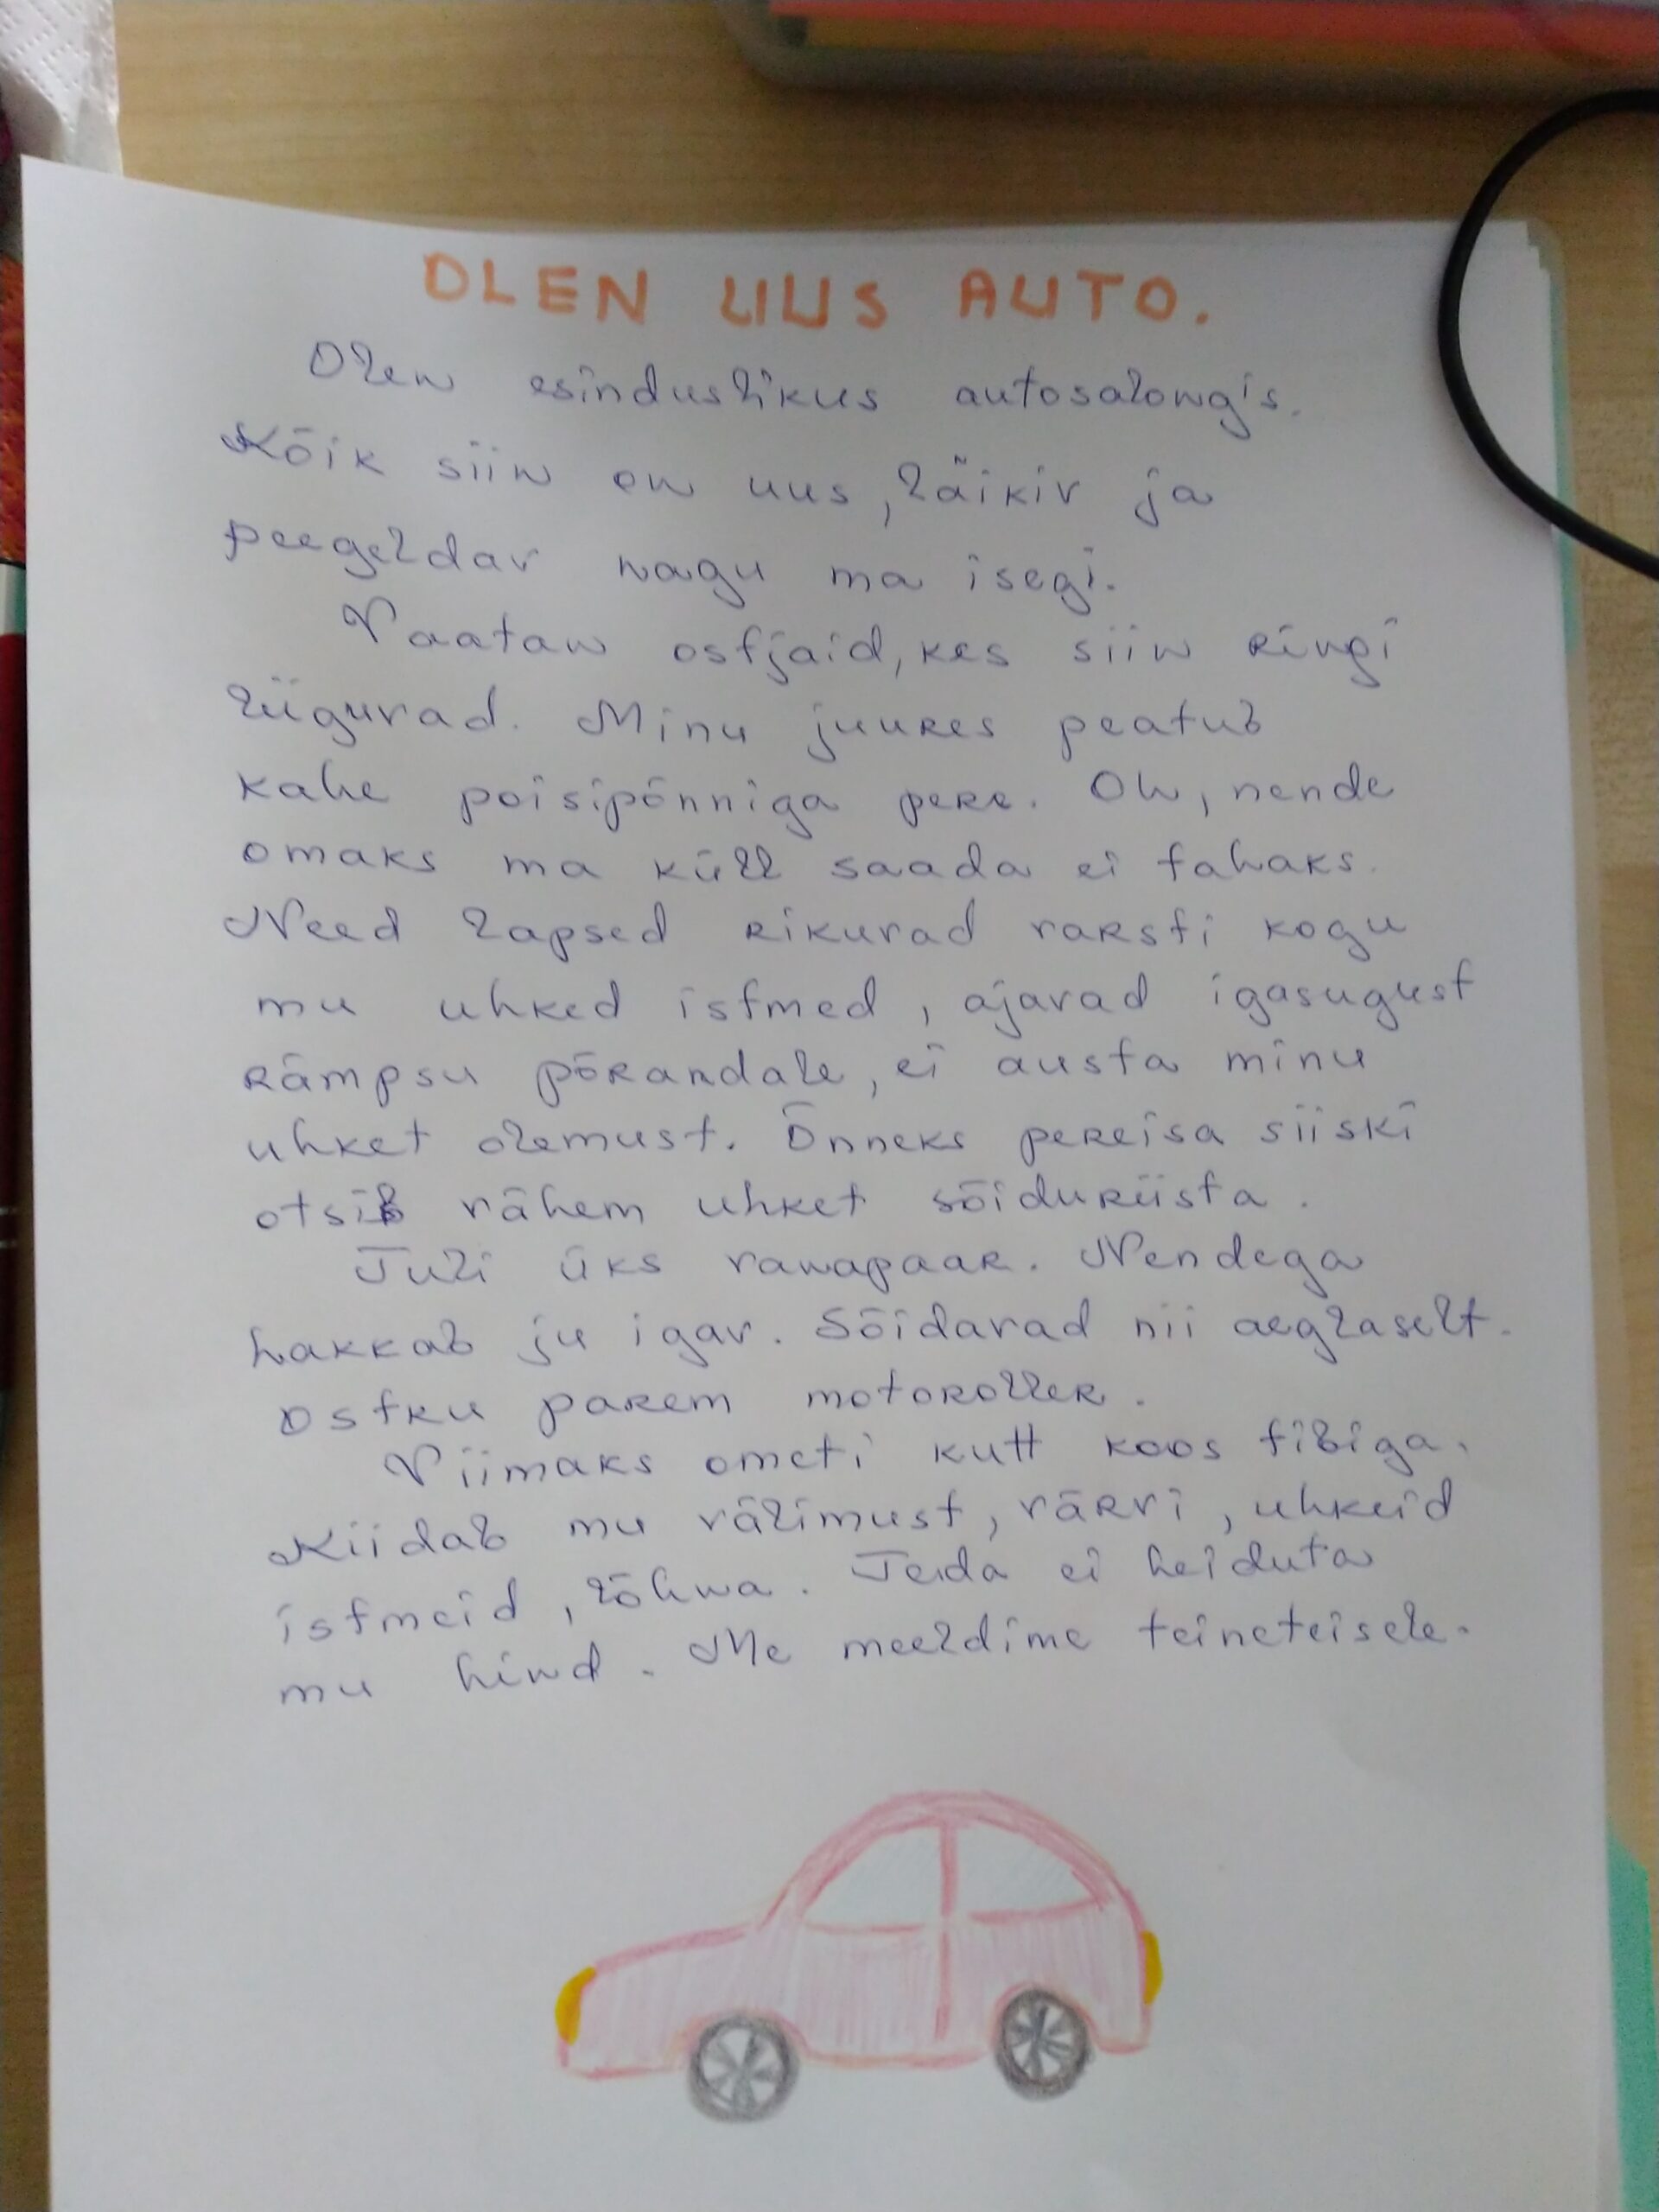 OLEN UUS AUTO.
Olen esinduslikus autosalongis.
Kõik siin on uus, läikiv ja
peegeldav nagu ma isegi.
Vaatan ostjaid, kes siin ringi
liiguvad. Minu juures peatub
kahe poisipõnniga pere. Oh, nende
omaks ma küll saada ei tahaks.
Need lapsed rikuvad varsti kogu
mu uhked istmed, ajavad igasugust
rämpsu põrandale, ei austa minu
uhket olemust. Õnneks pereisa siiski
otsib vähem uhket sõiduriista.
Tuli üks vanapaar. Nendega
hakkab ju igav. Sõidavad nii aeglaselt.
Ostku parem motoroller.
Viimaks ometi kutt koos tibiga.
Kiidab mu välimust, värvi, uhkeid
istmeid, lõhna. Teda ei heiduta
mu hind. Me meeldime teineteisele.